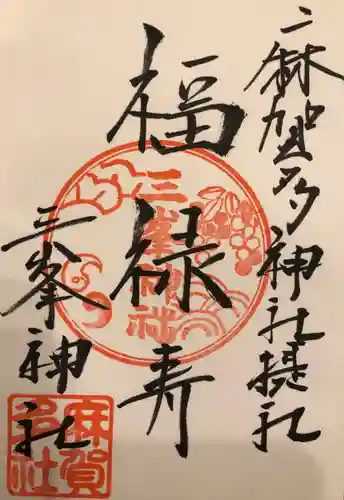 二麻賀多神社境社
福禄寿
三峯神社
三峯神社
麻賀多社